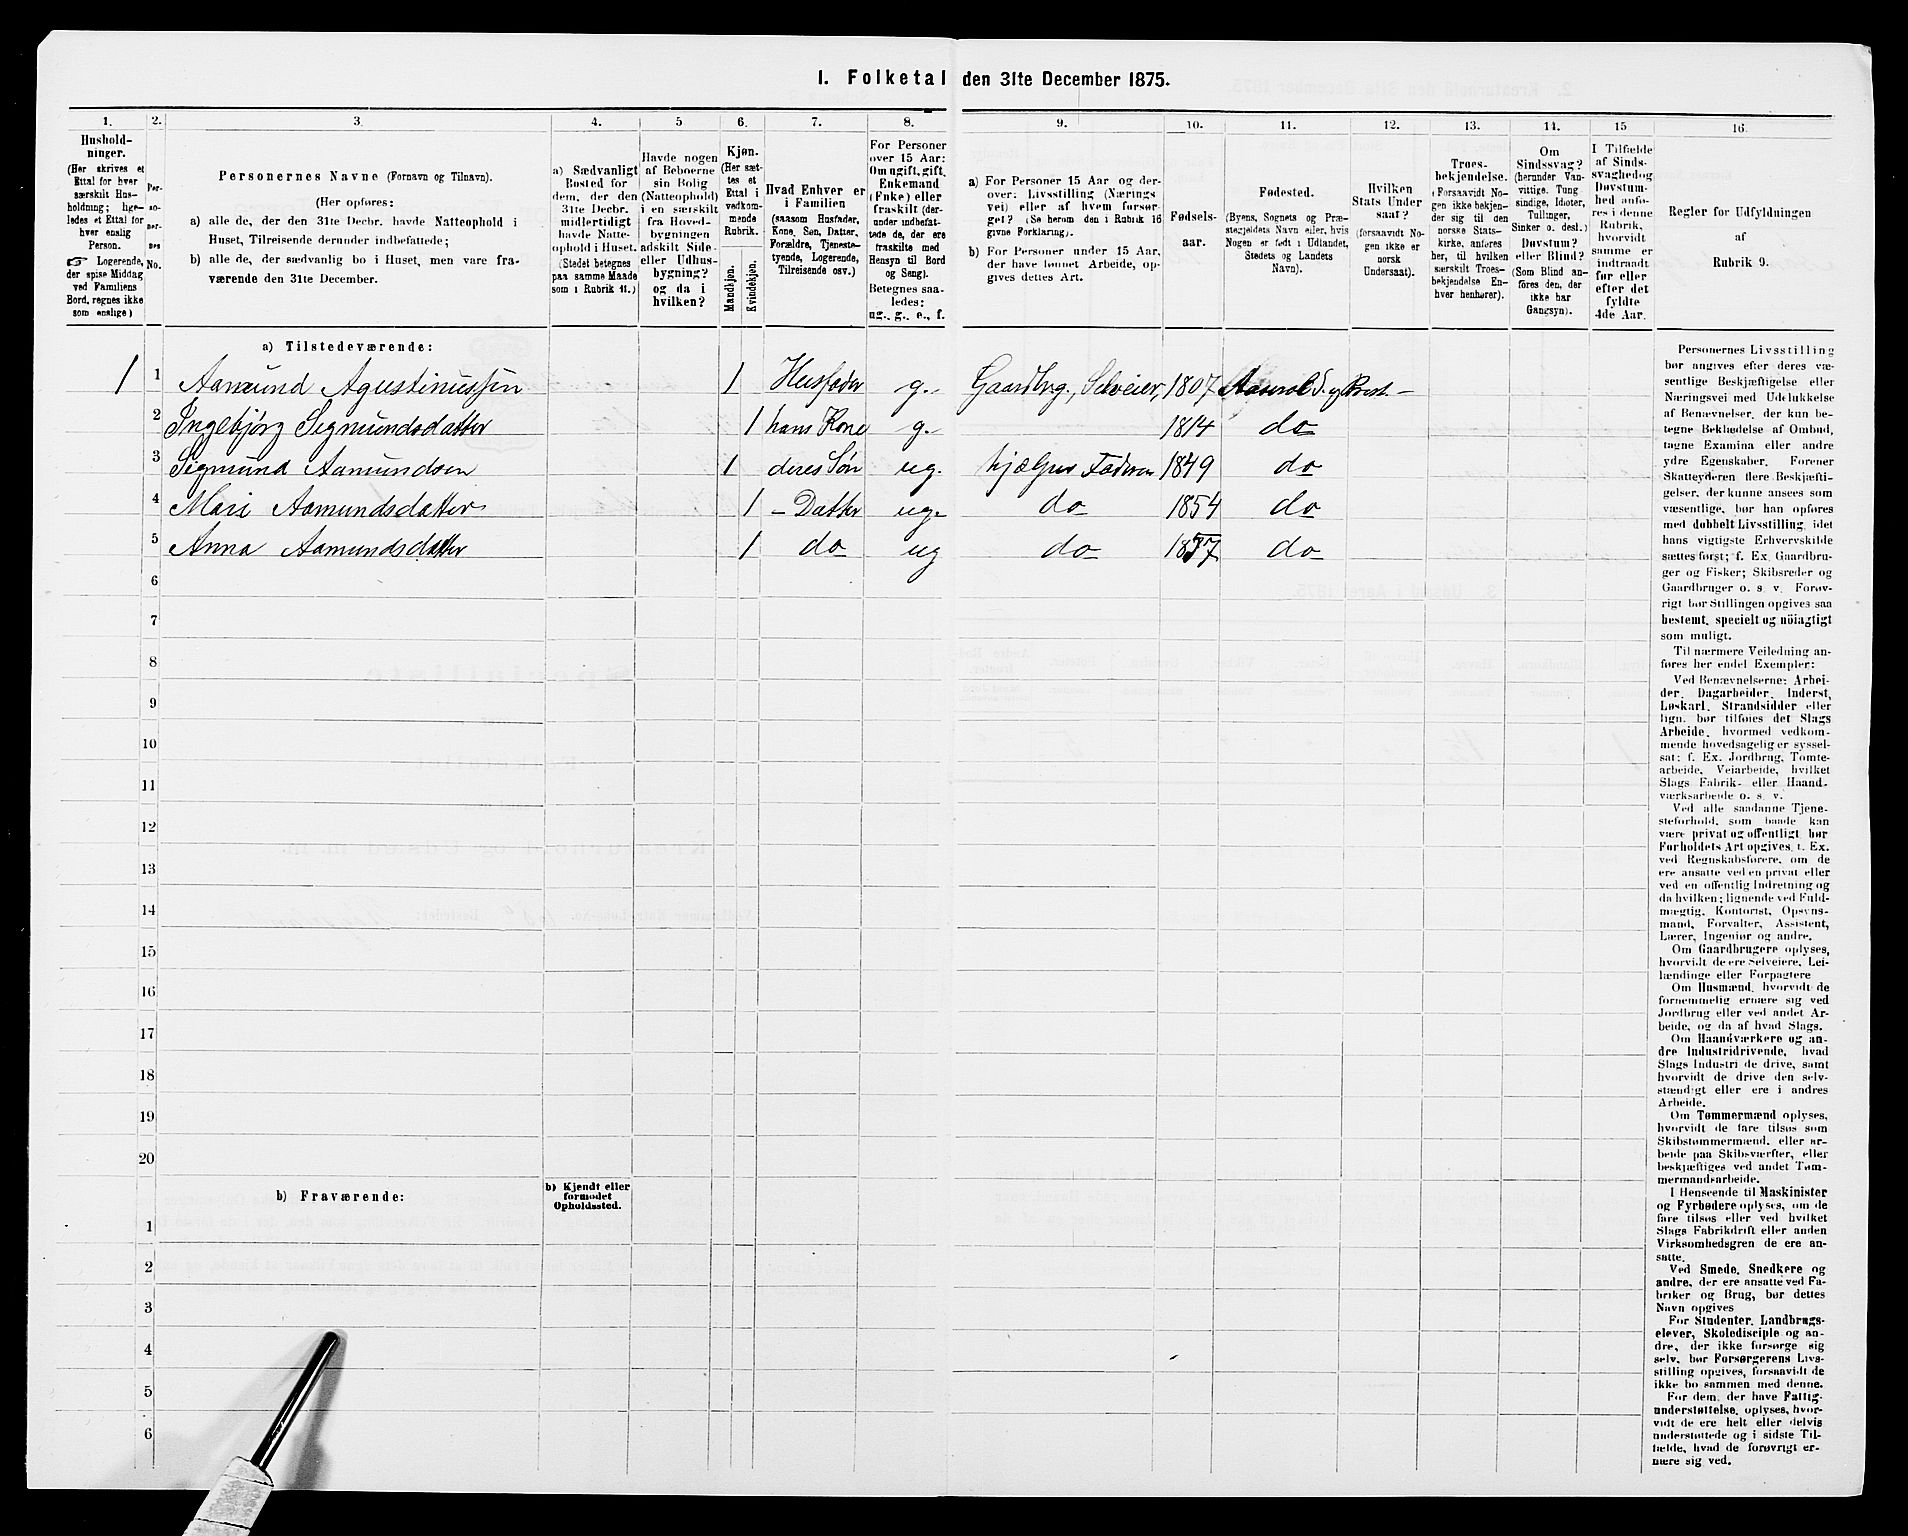 1. Folketal den 31te December 1875.
1.
Hushold-
ninger.
(Her skrives et
Ettal for hver
særskilt Hus-
holdning; lige-
ledes et Ettal for
hver enslig
Person.
☞ Logerende,
der spise Middag
ved Familiens
Bord, regnes ikke
som enslige)
2.
Per-
so-
ner-
nes
No.
3.
Personernes Navne (Fornavn og Tilnavn).
(Her opføres:
a) alle de, der den 31te Decbr. havde Natteophold i
Huset, Tilreisende derunder indbefattede;
b) alle de, der sædvanlig bo i Huset, men vare fra-
værende den 31te December.
4.
a) Sædvanligt
Bosted for
dem, der den
31te Decbr.
midlertidigt
havde Natte-
ophold i Huset.
(Stedet betegnes
paa samme Maade
som i Rubrik 11.)
5
Havde nogen
af Beboerne
sin Bolig
(Natteophold)
i en særskilt
fra Hoved-
bygningen
adskilt Side-
eller Udhus-
bygning?
og da i
hvilken?
6.
Kjøn.
(Her sæt-
tes et
Ettal i
vedkom-
mende
Rubrik.
Mandkjøn.
Kvindekjøn.
7.
Hvad Enhver er
i Familien
(saasom Husfader,
Kone, Søn, Datter,
Forældre, Tjeneste-
tyende, Logerende,
Tilreisende osv.)
8.
For Personer
over 15 Aar:
Om ugift, gift,
Enkemand
(Enke) eller
fraskilt (der-
under indbefat-
tede de, der ere
fraskilte med
Hensyn til Bord
og Seng).
Betegnes saa-
ledes:
ug., g., e., f.
9.
a) For Personer 15 Aar og der-
over: Livsstilling (Nærings
vei) eller af hvem forsør-
get? (Se herom den i Rubrik 16
givne Forklaring).
b) For Personer under 15 Aar,
der have lønnet Arbeide, op-
gives dettes Art.
10.
Fødsels-
aar.
11.
Fødested.
(Byens, Sognets og Præ-
stegjeldets Navn eller, hvis
Nogen er født i Udlandet,
Stedets og Landets
Navn).
12.
Hvilken
Stats Under
saat?
(forsaavidt No-
gen ikke er
norsk
Undersaat).
13.
Troes-
bekjendelse.
(Forsaavidt No-
gen ikke bekjen-
der sig til den
norske Stats-
kirke, anføres
her, til hvilken
særskilt Troes-
bekjendelse En-
hver henhører).
14.
Om
Sindssvag?
(herunder Van-
vittige, Tung
sindige, Idioter,
Tullinger,
Sinker o. desl.)
Døvstum?
eller Blind?
(Som Blind an-
føres den, der
ikke har
Gangsyn).
15
I Tilfælde
af Sinds-
svaghed og
Døvstum-
hed anfø-
res i denne
Rubrik,
hvorvidt
samme er
indtraadt
før eller
efter det
fyldte
4de Aar.
16.
Regler for Udfyldningen
af
Rubrik 9.
a) Tilstedeværende:
1 1 Aamund Agustinussøn 1 Husfader g. Gaardbrg., Selveier, 1807 Aaseral S. og Præst.
2 Ingebjørg Sigmundsdatter 1 hans Kone g. 1814 do
3 Sigmund Aamundsen 1 deres Søn ug. hjælper Faderen 1849 do
4 Mari Aamundsdatter 1 - Datter ug. do 1854 do
5 Anna Aamundsdatter 1 do ug do 1857 do
6
7
8
9
10
11
12
13
14
15
16
17
18
19
20
b) Fraværende:
b) Kjendt eller
formodet
Opholdssted.
1
2
3
4
5
6
Personernes Livsstilling
bør angives efter deres væ-
sentlige Beskjæftigelse eller
Næringsvei med Udelukkelse
af Benævnelser, der kun be-
tegne Beklædelse af Ombud,
tagne Examina eller andre
ydre Egenskaber. Forener
Skatteyderen flere Beskjæfti-
gelser, der kunne ansees som
væsentlige, bør han opføres
med dobbelt Livsstilling, idet
hans vigtigste Erhvervskilde
sættes først; f. Ex. Gaardbru-
ger og Fisker; Skibsreder og
Gaardbruger o. s. v. Forøv-
rigt bør Stillingen opgives saa
bestemt, specielt og nöiagtigt
som muligt.
Til nærmere Veiledning an-
føres her endel Exempler:
Ved Benævnelserne: Arbei-
der, Dagarbeider, Inderst,
Løskarl, Strandsidder eller
lign. bør tilføies det Slags
Arbeide, hvormed vedkom-
mende hovedsagelig er syssel-
sat; f. Ex. Jordbrug, Tomte-
arbeide, Veiarbeide, hvilket
Slags Fabrik- eller Haand-
værksarbeide o. s. v.
Ved alle saadanne Tjene-
steforhold, som baade kan
være privat og offentligt, bør
Forholdets Art opgives, t. Ex.
ved Regnskabsførere, om de
ere ansatte ved en privat eller
ved en offentlig Indretning og
da hvilken; lignende ved Fuld-
mægtig, Kontorist, Opsyns-
mand, Forvalter, Assistent,
Lærer, Ingeniør og andre.
Om Gaardbrugere oplyses,
hvorvidt de ere Selveiere, Lei-
lændinge eller Forpagtere
Om Husmænd, hvorvidt de
fornemmelig ernære sig ved
Jordbrug eller ved andet Ar-
beide, og da af hvad Slags.
Om Haandværkere og an-
dre Industridrivende, hvad
Slags Industri de drive, samt
hvorvidt de drive den selv-
stændigt eller ere i andres
Arbeide.
Om Tømmermænd oplyses,
hvorvidt de fare tilsøs som
Skibstømmermænd, eller ar-
beide paa Skibsværfter, eller
beskjæftiges ved andet Tøm-
mermandsarbeide.
I Henseende til Maskinister
og Fyrbødere oplyses, om de
fare tilsøs eller ved hvilket
Slags Fabrikdrift eller anden
Virksomhedsgren de ere an-
satte.
Ved Smede, Snedkere og
andre, der ere ansatte ved Fa-
briker og Brug, bør dettes
Navn opgives
For Studenter, Landbrugs-
elever, Skoledisciple og an-
dre, der ikke forsørge sig
selv, bør Forsørgerens Livs-
stilling opgives, forsaavidt de
ikke bo sammen med denne.
For dem, der have Fattig-
understøttelse, oplyses, hvor-
vidt de ere helt eller delvis
understøttede og i sidste Til-
fælde, hvad de forøvrigt er-
nære sig ved.